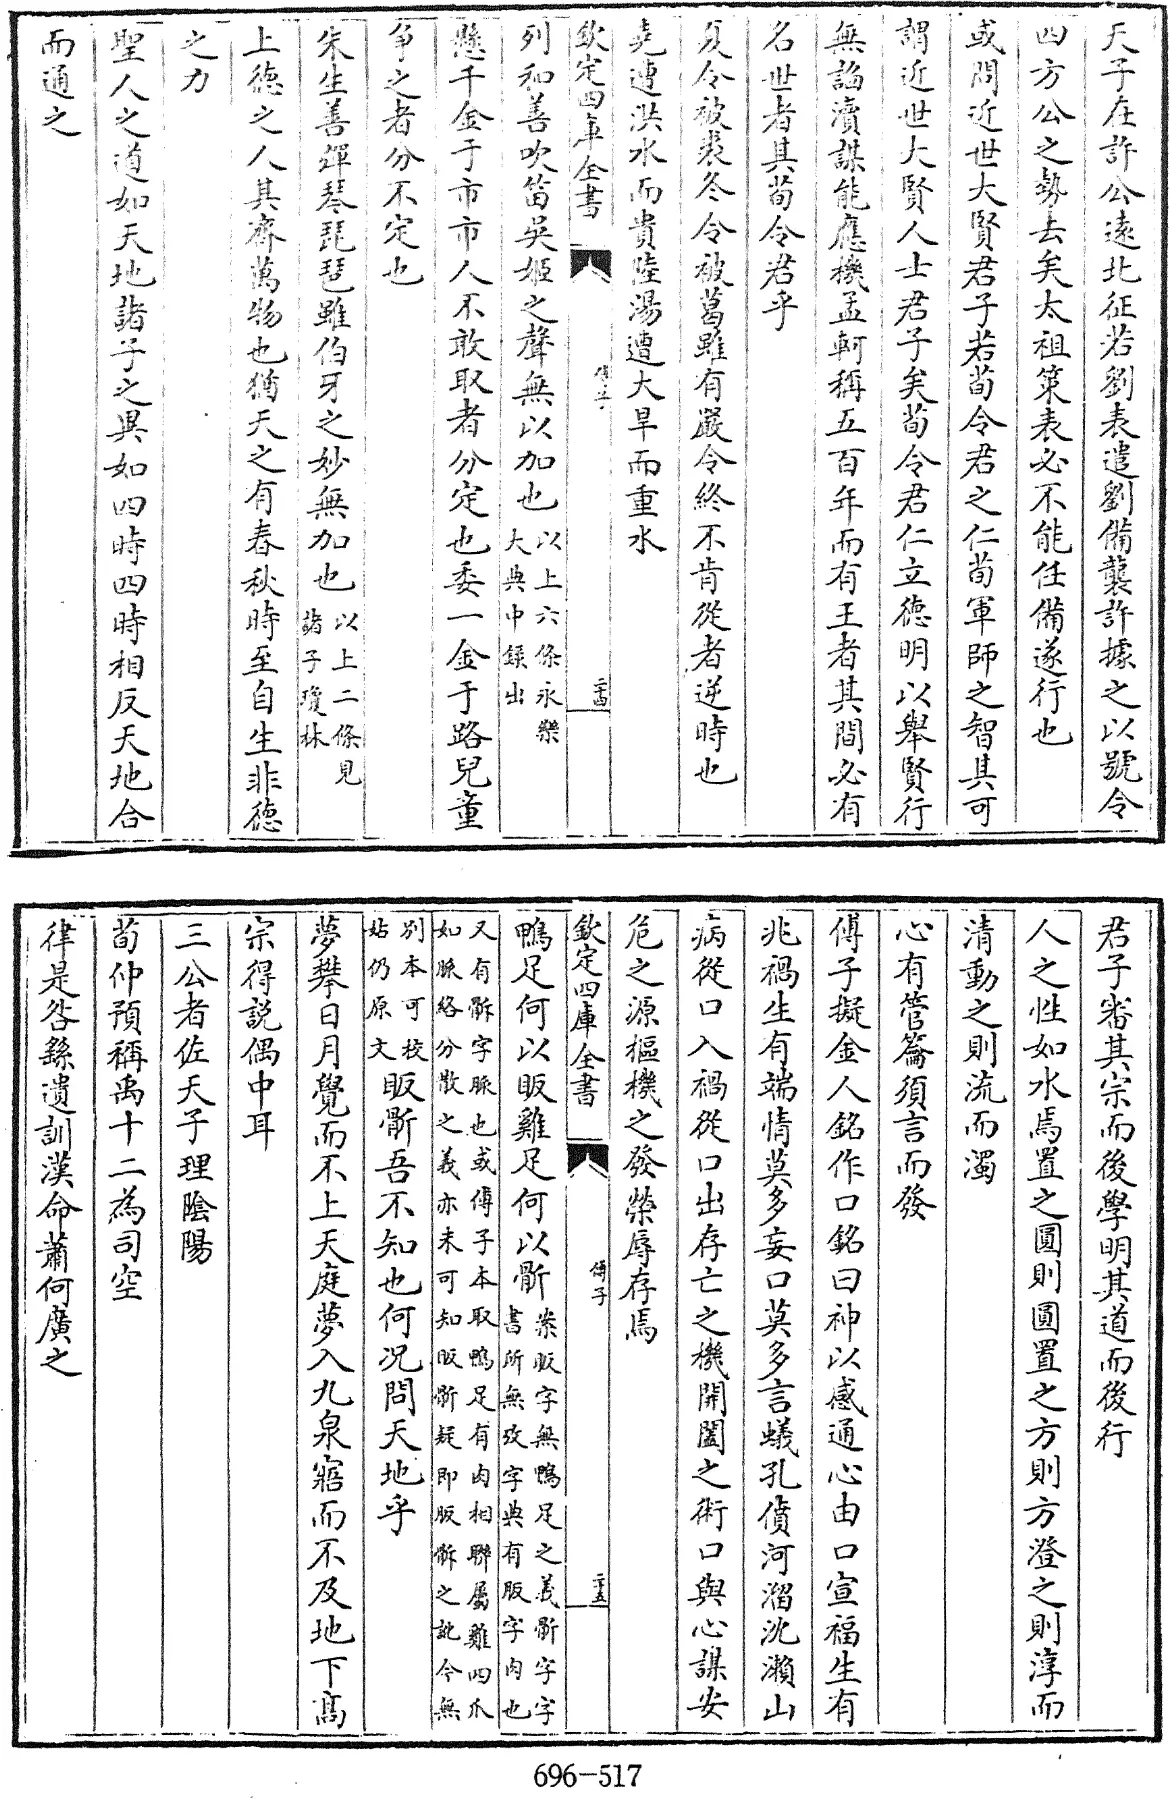 天子在許公遠北征若劉表遣劉備襲許據之以號令
四方公之勢去矣太祖策表必不能任備遂行也
或問近世大賢君子若荀令君之仁荀軍師之智其可
謂近世大賢人士君子矣荀令君仁立德明以舉賢行
無諂瀆謀能應機孟軻稱五百年而有王者其間必有
名世者其荀令君乎
夏令被裘冬令被葛雖有嚴令終不肯從者逆時也
堯遭洪水而貴陸湯遭大旱而重水
欽定四庫全書
傅子
二十四
列和善吹笛吳姬之聲無以加也以上六條永樂
大典中錄出
懸千金于市市人不敢取者分定也委一金于路兒童
爭之者分不定也
朱生善彈琴琵琶雖伯牙之妙無加也以上二條見
諸子瓊林
上德之人其齊萬物也猶天之有春秋時至自生非德
之力
聖人之道如天地諸子之異如四時四時相反天地合
而通之
君子審其宗而後學明其道而後行
人之性如水焉置之圓則圓置之方則方澄之則渟而
清動之則流而濁
心有管籥須言而發
傅子擬金人銘作口銘曰神以感通心由口宣福生有
兆禍生有端情莫多妄口莫多言蟻孔潰河溜沈瀨山
病從口入禍從口出存亡之機開闔之術口與心謀安
危之源樞機之發榮辱存焉
欽定四庫全書
傅子
二十五
鴨足何以眅雞足何以斵案眅字無鴨足之義斵字字
書所無攷字典有眅字肉也
又有斵字脈也或傅子本取鴨足有肉相聯屬雞四爪
如脈絡分散之義亦未可知眅斵疑即眅斵之訛今無
別本可校
姑仍原文眅斵吾不知也何况問天地乎
夢攀日月覺而不上天庭夢入九泉寤而不及地下髙
宗得説偶中耳
三公者佐天子理隂陽
荀仲預稱禹十二為司空
律是咎繇遺訓漢命蕭何廣之
696-517